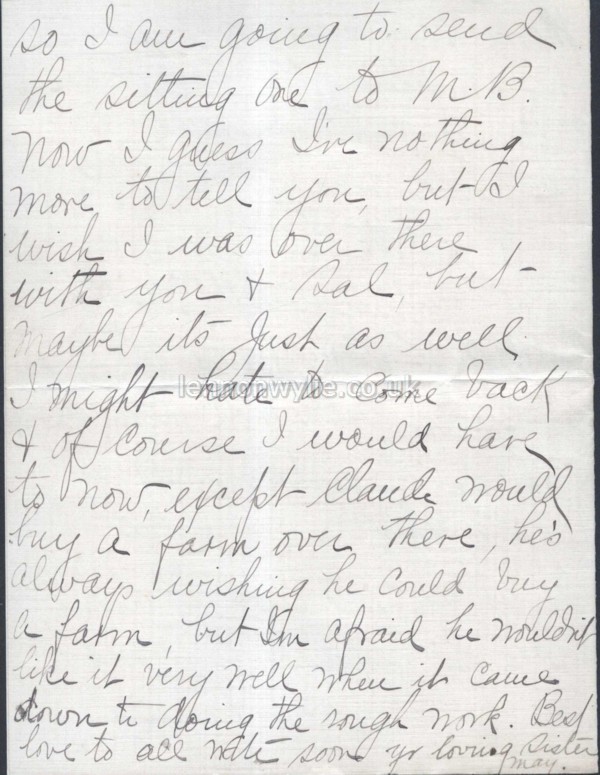 so I am going to send
the sitting one to M.B.
now I guess I've nothing
more to tell you, but I
wish I was over there
with you & Sal, but
maybe its just as well
I might hate to come back
lennonwylie.co.uk
& of course I would have
to now, except Claude would
buy a farm over there, he's
always wishing he could buy
a farm, but I'm afraid he wouldn't
like it very well when it came
down to doing the rough work. Best
love to all write soon yr loving sister
May.